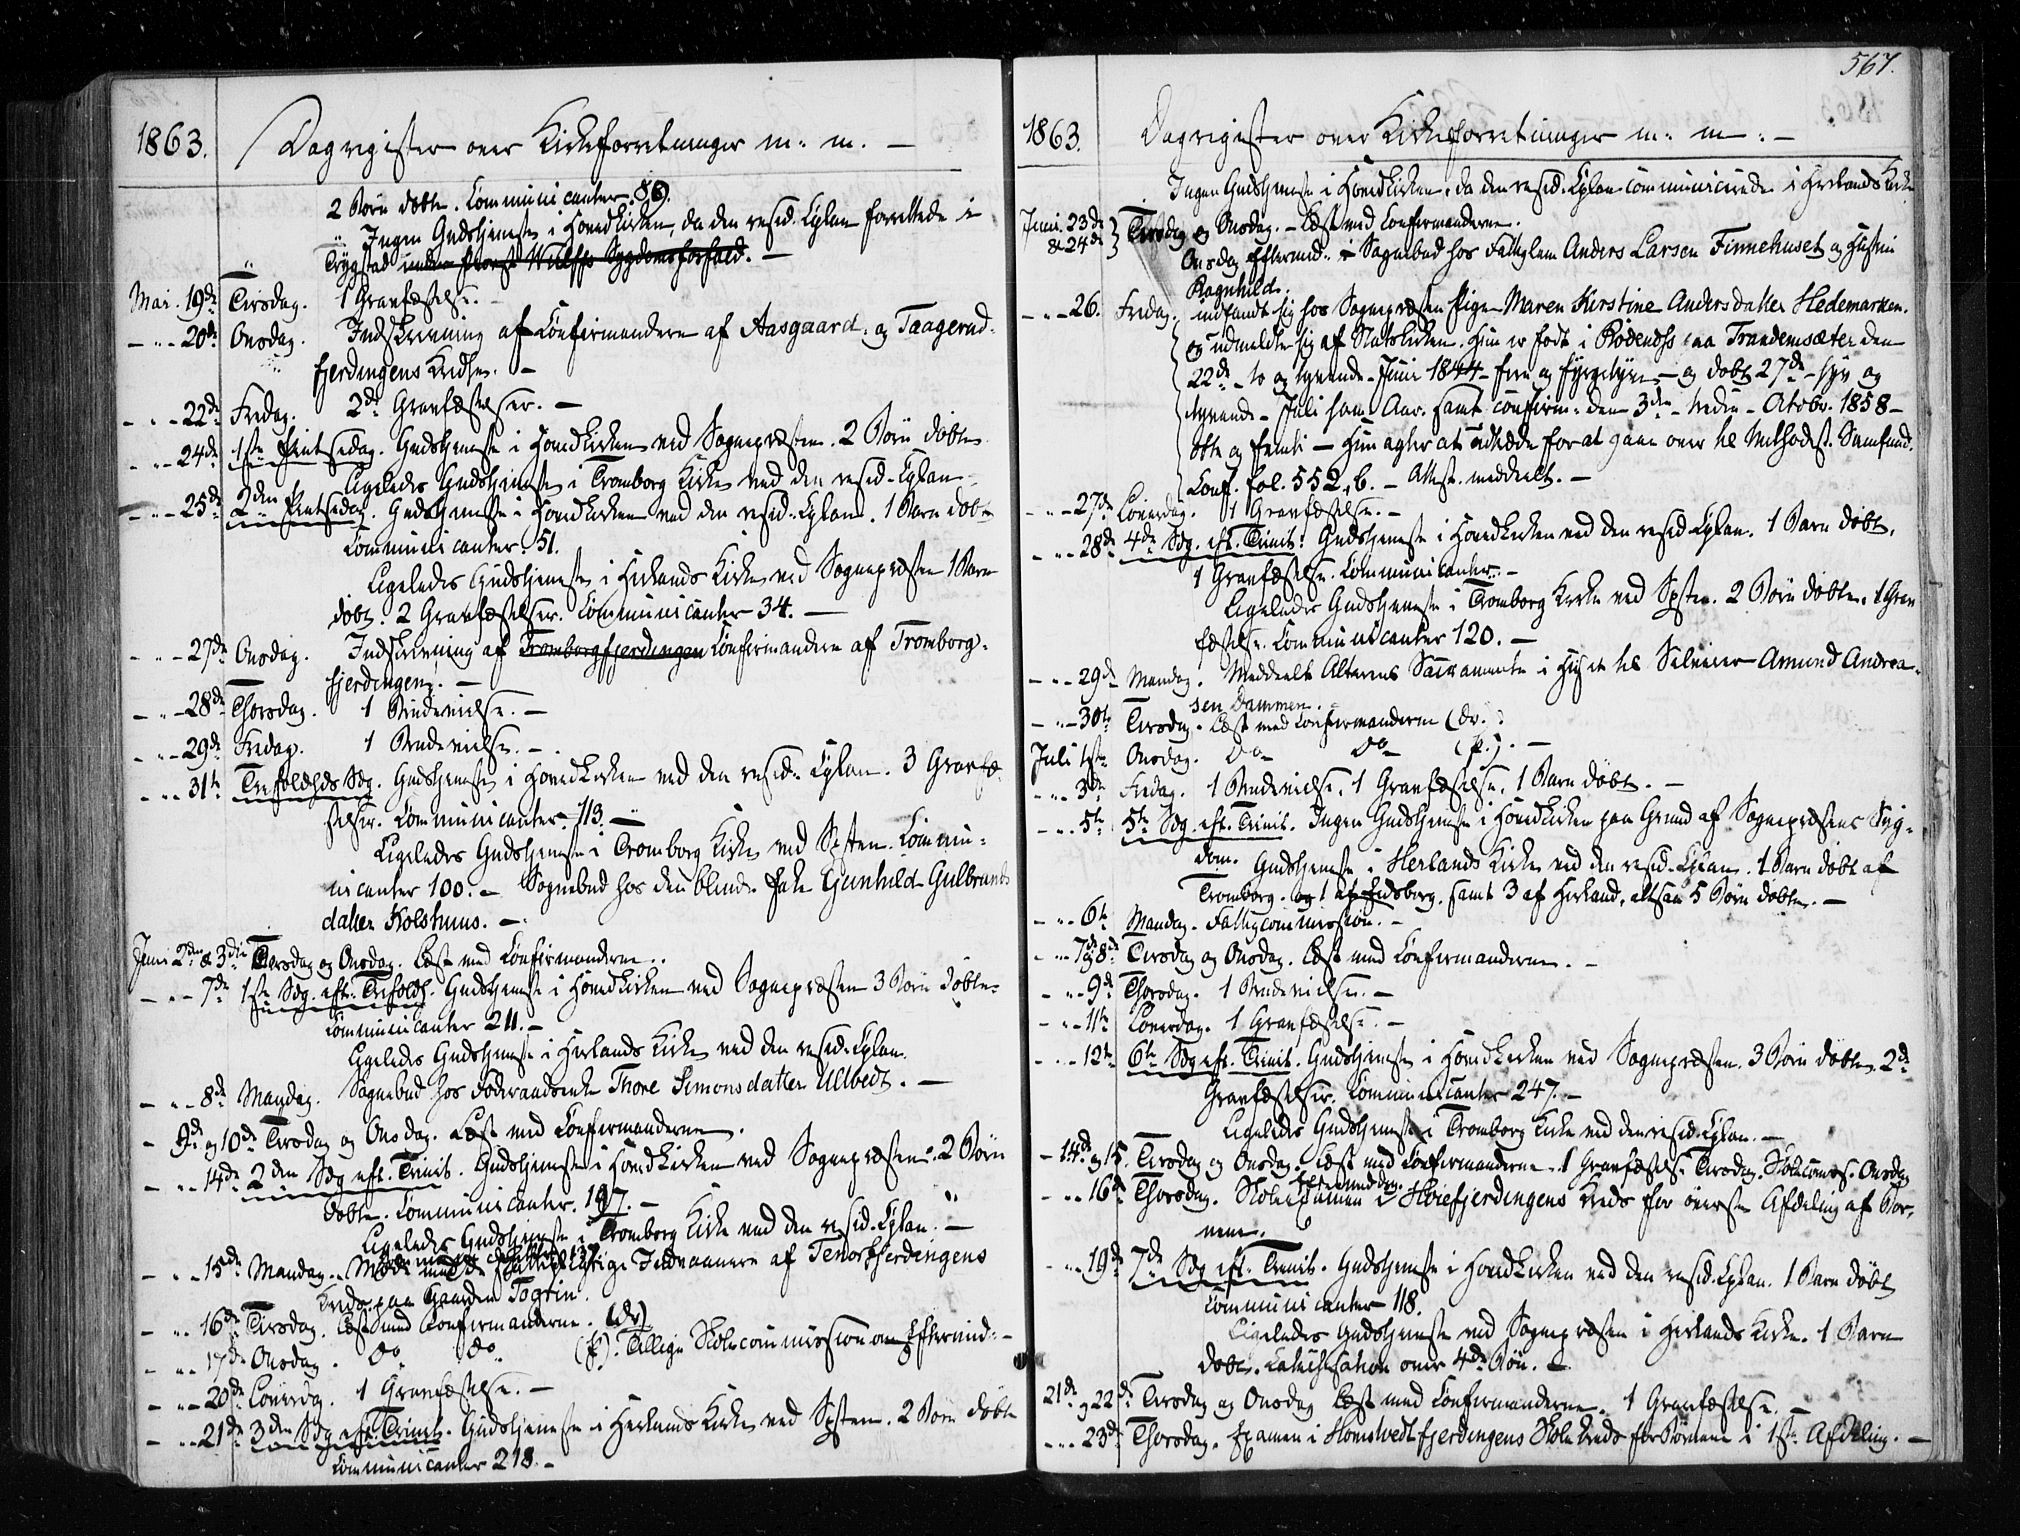 1863. Dagregister over Kirkeforretninger m. m. —
2 Børn døbte. Communicanter 86.
Ingen Gudstjeneste i Hovedkirken, da den resid. Cplan forrettede i
Trygstad under Provst Wulffs Sygdomsforfald. —
Mai. 19de Tirsdag. 1 Gravfæstelse. —
— " — 20de Onsdag. Indskrivning af Confirmandere af Aasgaard- og Taagerud-
fjerdingens Kredse. —
— " — 22de Fredag. 2de Gravfæstelser. —
— " — 24de 1ste Pintsedag. Gudstjeneste i Hovedkirken ved Sognepræsten. 2 Børn døbte
Ligeledes Gudstjeneste i Tromborg Kirke ved den resid. Cplan —
— " — 25de 2den Pintsedag. Gudstjeneste i Hovedkirken ved den resid. Cplan. 1 Barn døbt
Communicanter 51.
Ligeledes Gudstjeneste i Herlands Kirke ved Sognepræsten 1 Barn
døbt. 2 Gravfæstelser. Communicanter 34. —
— " — 27de Onsdag. Indskrivning af Tromborgfjerdingen Confirmandere af Tromborg-
fjerdingen. —
— " — 28de Thorsdag. 1 Brudevielse. —
— " — 29de Fredag. 1 Brudevielse. —
— " — 31te Trefoldghds Sdg. Gudstjeneste i Hovedkirken ved den resid. Cplan. 3 Gravfæ-
stelser. Communicanter 113. —
Ligeledes Gudstjeneste i Tromborg Kirke ved Spsten. Commu-
nicanter 100. — Sognebud hos den blinde Enke Gunhild Gulbrands
datter Kolstuns. —
Juni 2den & 3die Tirsdag og Onsdag. Læst med Confirmanderne.
— " — 7de 1ste Sdg. eft. Trefoldh. Gudstjeneste i Hovedkirken ved Sognepræsten 3 Børn døbte
Communicanter 211. —
Ligeledes Gudstjeneste i Herlands Kirke ved den resid. Cplan.
— " — 8de Mandag. Sognebud hos Føderaadsenke Thore Simonsdatter Ullvedt. —
— 9de og 10de Tirsdag og Onsdag. Læst med Confirmanderne.
— " — 14de 2den Sdg eft. Trinit. Gudstjeneste i Hovedkirken ved Sognepræsten. 2 Børn
døbte. Communicanter 197. —
Ligeledes Gudstjeneste i Tromborg Kirke ved den resid. Cplan. —
— " — 15de Mandag. Møde med de Indvaanere af Tenorfjerdingens
Kreds paa Gaarden Togrin.
— " — 16de Tirsdag. Læst med Confirmanderne. (Dr.)
— " — 17de Onsdag. Do Do (P.). Tillige Skolecommission om Eftermid. —
— " — 20de Løverdg. 1 Gravfæstelse. —
— " — 21de 3den Sdg eft. Trinit. Gudstjeneste i Herlands Kirke ved Spsten. 2 Børn døbte
Communicanter 218. —
567.
1863. Dagregister over Kirkeforretninger m. m. —
Ingen Gudstjeneste i Hovedkirken, da den resid. Cplan communicerede i Herlands Kirke
Juni 23de & 24de } Tirsdag og Onsdag. — Læst med Confirmanderne.
Onsdag Eftermid. i Sognebud hos Fattiglem Anders Larsen Finnehuset og Hustru
Ragnhild.
— " — 26. Fredag. indfandt sig hos Sognepræsten Pigen Maren Kerstine Andersdatter Hedemarken.
og udmeldte sig af Statskirken. Hun er født i Rødenæs paa Trandemsæter den
22de — to og tyvende — Juni 1844 — fire og fyrgetyve — og døbt 27de — syv og
tyvende — Juli sam. Aar. samt confirm. den 3die — tredie — Octobr. 1858 —
otte og femti — Hun agter at udtræde for at gaae over til Methodist. Samfund.
Conf. fol. 552. b. — Attest. meddeelt. —
— " — 27de Løverdag. 1 Gravfæstelse. —
— " — 28de 4de Sdg. eft. Trinit. Gudstjeneste i Hovedkirken ved den resid Cplan. 1 Barn døbt.
1 Gravfæstelse. Communicanter —
Ligeledes Gudstjeneste i Tromborg Kirke ved Spsten. 2 Børn døbte. 1 Grav
fæstelse. Communicanter 120. —
— " — 29de Mandag. Meddeelt Alterens Sacramente i Huset til Selveier Amund Andrea-
sen Dammen. —
— " — 30te Tirsdag. Læst med Confirmanderne (Dr.)
Juli 1ste Onsdag. Do — Do — (P.). —
— " — 3die Fredag. 1 Brudevielse. 1 Gravfæstelse. 1 Barn døbt. —
— " — 5te 5te Sdg. eft. Trinit. Ingen Gudstjeneste i Hovedkirken paa Grund af Sognepræstens Syg-
dom. Gudstjeneste i Herlands Kirke ved den resid. Cplan. 1 Barn døbt af
Tromborg. og 1 af Eidsberg. samt 3 af Herland, altsaa 5 Børn døbte. —
— " — 6te Mandag. Fattigcommission. —
— " — 7de & 8de Tirsdag og Onsdag. Læst med Confirmanderne. —
— " — 9de Thorsdag. 1 Brudevielse. —
— " — 11te Løverdag. 1 Gravfæstelse. —
— " — 12te 6te Sdg eft. Trinit. Gudstjeneste i Hovedkirken ved Sognepræsten. 3 Børn døbte. 2de
Gravfæstelser. Communicanter 247. —
Ligeledes Gudstjeneste i Tromborg Kirke ved den resid. Cplan. —
— 14de og 15. Tirsdag og Onsdag. Læst med Confirmanderne. 1 Gravfæstelse Tirsdag. Skolecomms. Onsdag
Eftermiddag.
— " — 16de Thorsdag. Skoleexamen i Høiefjerdingens Kreds for øverste Afdeling af Bør-
nene.
— " — 19de 7de Sdg eft. Trinit. Gudstjeneste i Hovedkirken ved den resid. Cplan. 1 Barn døbt
Communicanter 118.
Ligeledes Gudstjeneste ved Sognepræsten i Herlands Kirke. 1 Barn
døbt. Catechisation over 4de Bøn. —
21de og 22de Tirsdag og Onsdag læst med Confirmanderne. 1 Gravfæstelse. —
— " — 23de Thorsdag. Examen i Homstvedtfjerdingens Skole Kreds for Børnene i 1ste Afdeling. —